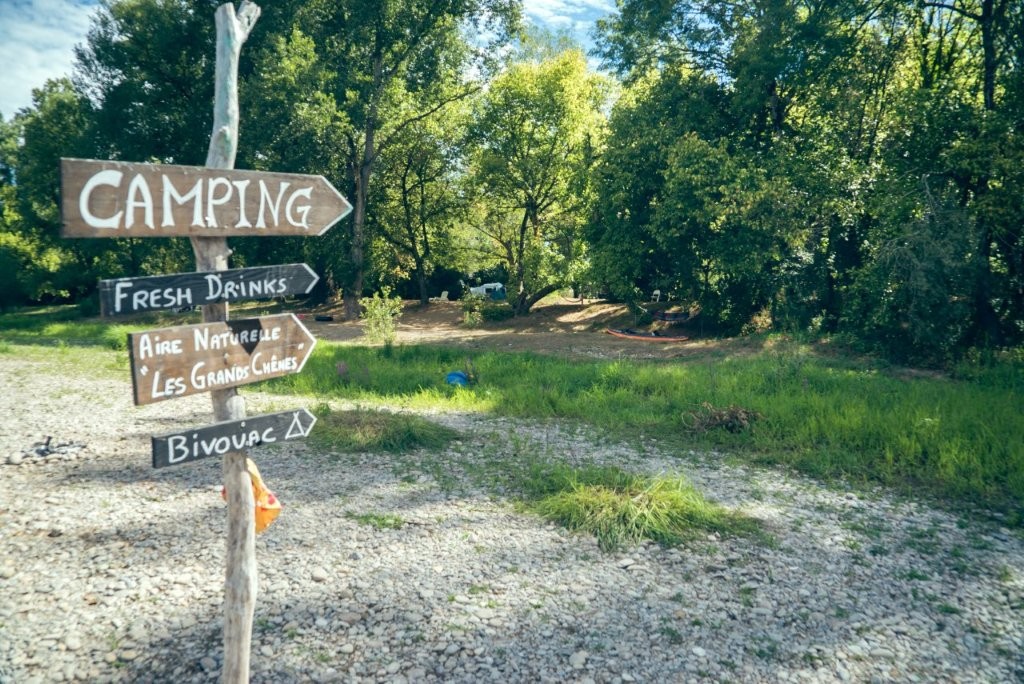 CAMPING
FRESH DRINKS
AIRE NATURELLE
"LES GRANDS CHÊNES"
BIVOUAC